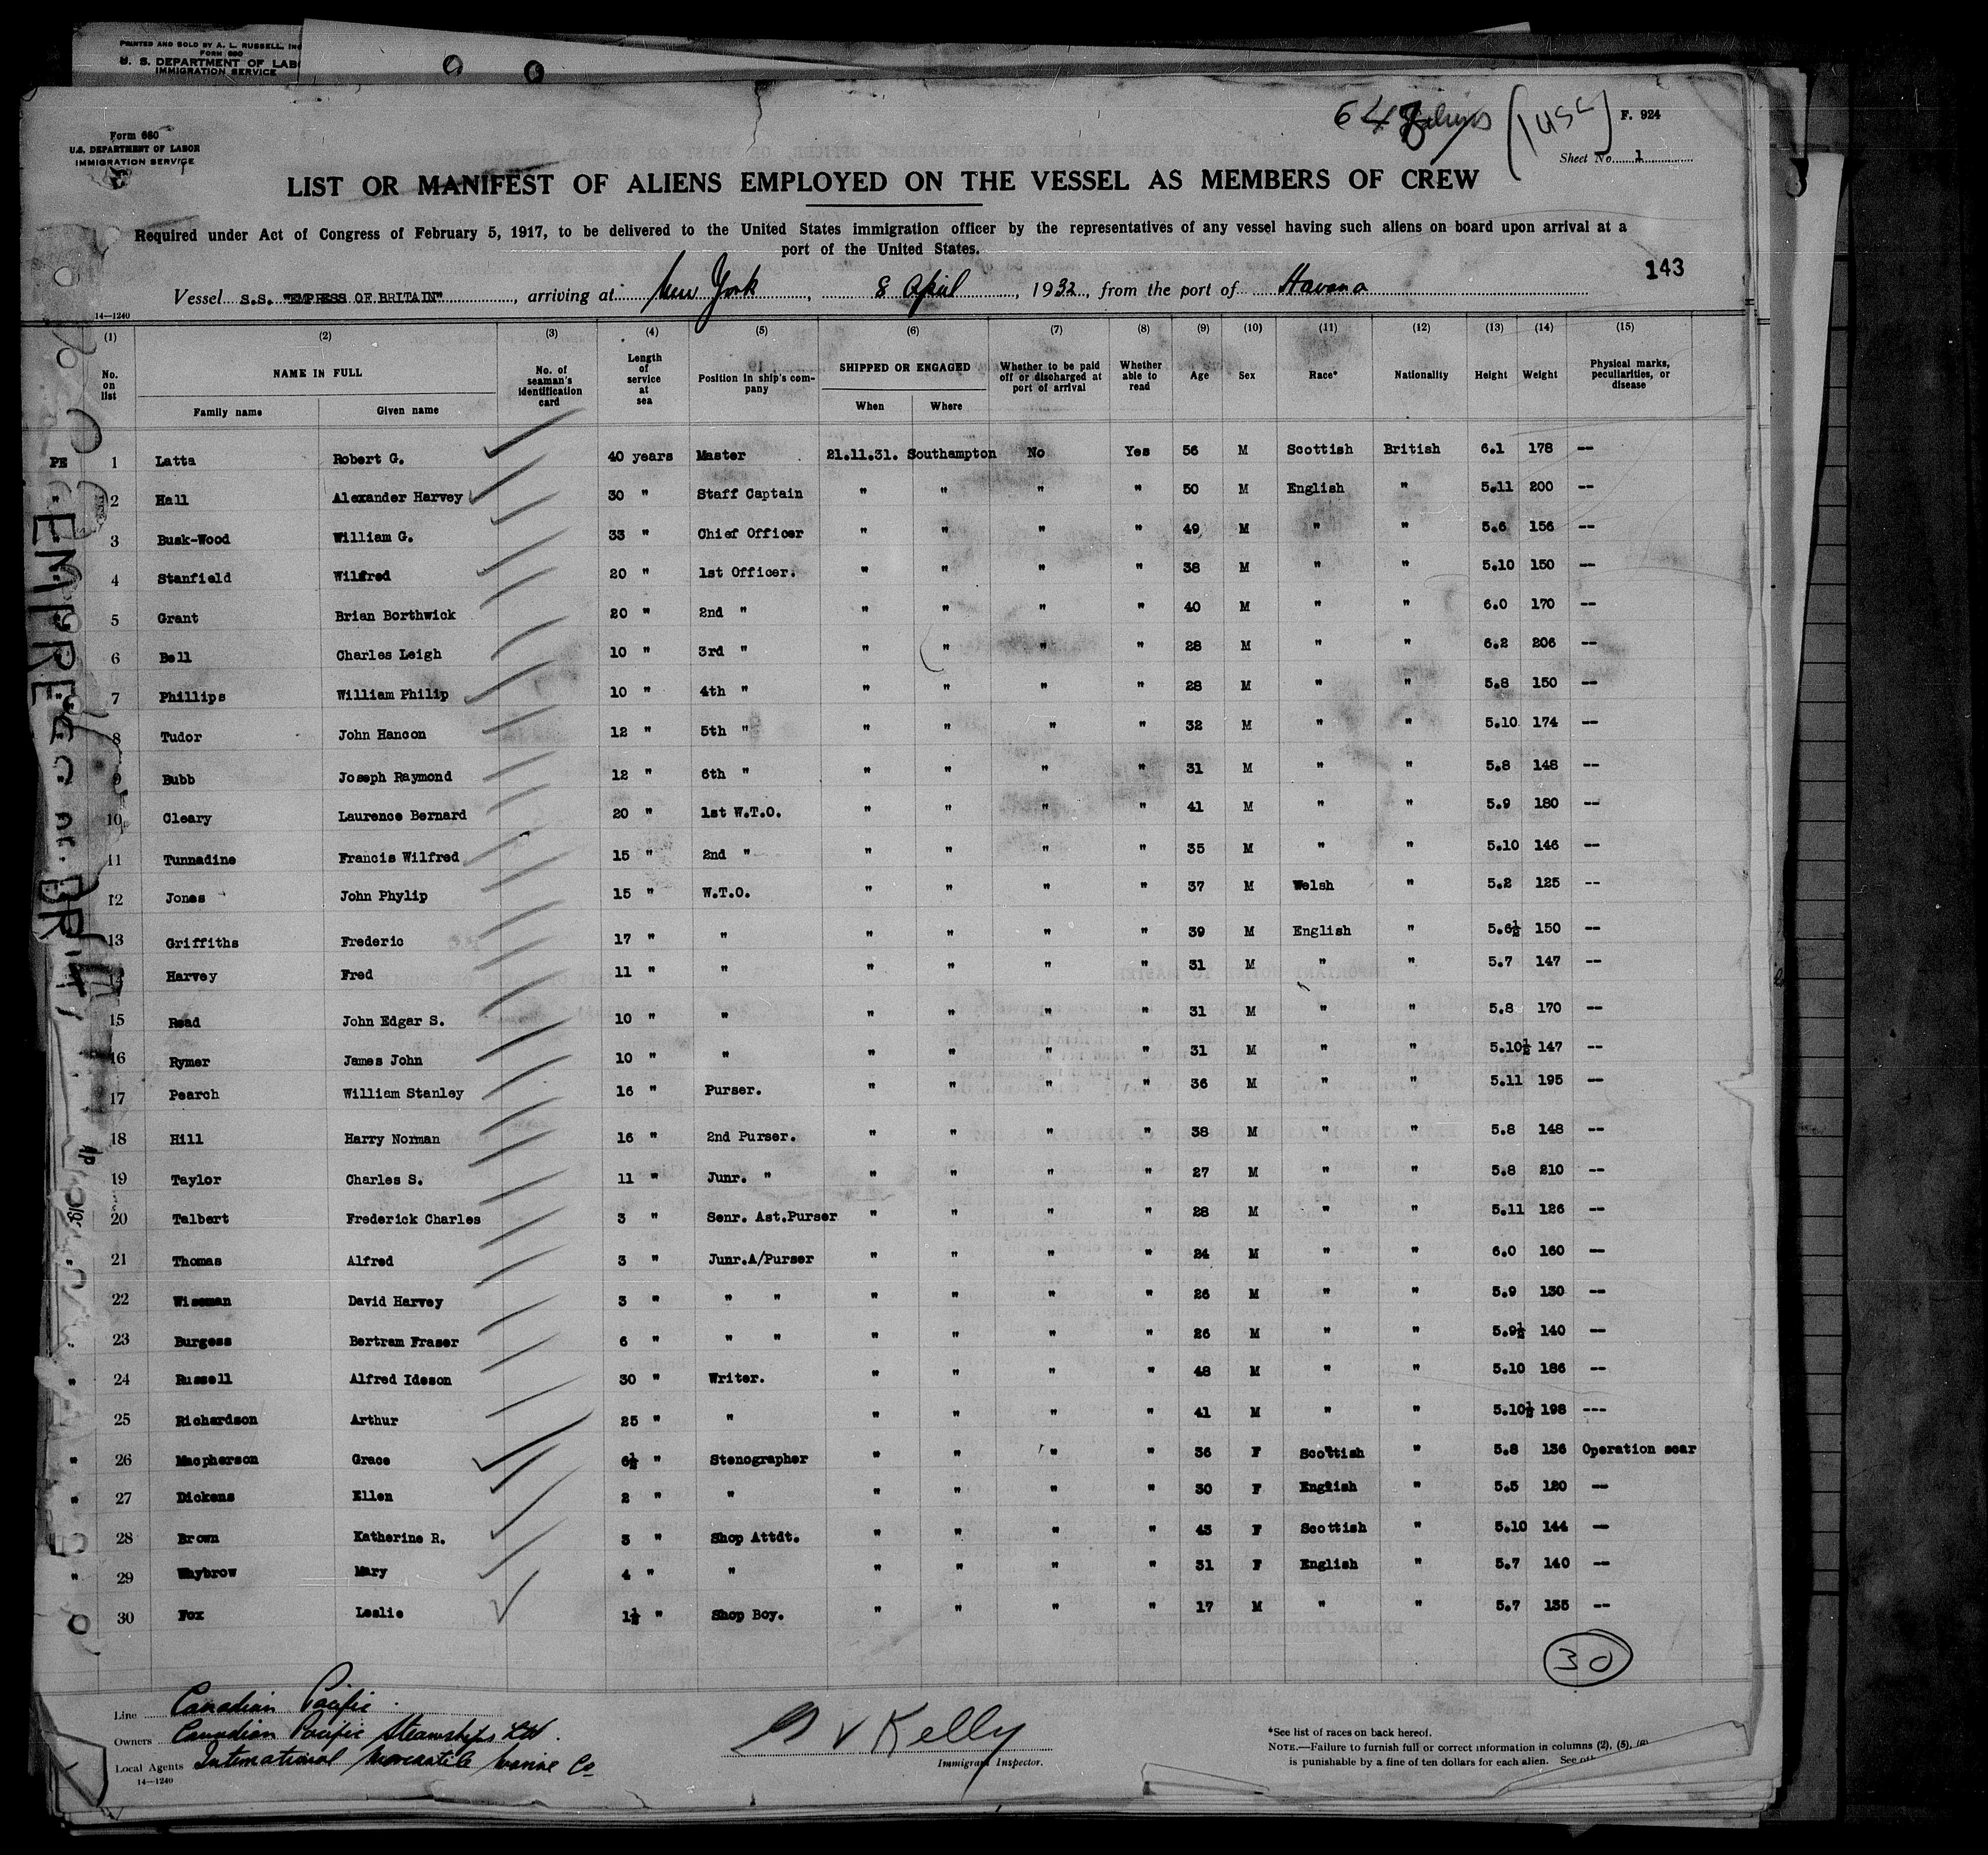 PRINTED AND SOLD BY A. L. RUSSELL, INC
FORM 680
U. S. DEPARTMENT OF LABO
IMMIGRATION SERVICE
648 aliens (1 USC) F. 924
Form 680
U.S. DEPARTMENT OF LABOR
IMMIGRATION SERVICE
Sheet No. 1
LIST OR MANIFEST OF ALIENS EMPLOYED ON THE VESSEL AS MEMBERS OF CREW
Required under Act of Congress of February 5, 1917, to be delivered to the United States immigration officer by the representatives of any vessel having such aliens on board upon arrival at a
port of the United States.
143
Vessel S.S. "EMPRESS OF BRITAIN", arriving at New York, 8 April, 1932, from the port of Havana
14—1240
(1) (2) (3) (4) (5) (6) (7) (8) (9) (10) (11) (12) (13) (14) (15)
No. on list NAME IN FULL No. of seaman's identification card Length of service at sea Position in ship's company SHIPPED OR ENGAGED Whether to be paid off or discharged at port of arrival Whether able to read Age Sex Race* Nationality Height Weight Physical marks, peculiarities, or disease
Family name Given name When Where
PE 1 Latta Robert G. 40 years Master 21.11.31. Southampton No Yes 56 M Scottish British 6.1 178 --
" 2 Hall Alexander Harvey 30 " Staff Captain " " " " 50 M English " 5.11 200 --
3 Busk-Wood William G. 33 " Chief Officer " " " " 49 M " " 5.6 156 --
4 Stanfield Wilfred 20 " 1st Officer. " " " " 38 M " " 5.10 150 --
5 Grant Brian Borthwick 20 " 2nd " " " " " 40 M " " 6.0 170 --
6 Bell Charles Leigh 10 " 3rd " " " " " 28 M " " 6.2 206 --
7 Phillips William Philip 10 " 4th " " " " " 28 M " " 5.8 150 --
8 Tudor John Hancon 12 " 5th " " " " " 32 M " " 5.10 174 --
9 Bubb Joseph Raymond 12 " 6th " " " " " 31 M " " 5.8 148 --
10 Cleary Laurence Bernard 20 " 1st W.T.O. " " " " 41 M " " 5.9 180 --
11 Tunnadine Francis Wilfred 15 " 2nd " " " " " 35 M " " 5.10 146 --
12 Jones John Phylip 15 " W.T.O. " " " " 37 M Welsh " 5.2 125 --
13 Griffiths Frederic 17 " " " " " " 39 M English " 5.6½ 150 --
14 Harvey Fred 11 " " " " " " 31 M " " 5.7 147 --
15 Read John Edgar S. 10 " " " " " " 31 M " " 5.8 170 --
16 Rymer James John 10 " " " " " " 31 M " " 5.10½ 147 --
17 Pearch William Stanley 16 " Purser. " " " " 36 M " " 5.11 195 --
18 Hill Harry Norman 16 " 2nd Purser. " " " " 38 M " " 5.8 148 --
19 Taylor Charles S. 11 " Junr. " " " " " 27 M " " 5.8 210 --
20 Talbert Frederick Charles 3 " Senr. Ast.Purser " " " " 28 M " " 5.11 126 --
21 Thomas Alfred 3 " Junr.A/Purser " " " " 24 M " " 6.0 160 --
22 Wiseman David Harvey 3 " " " " " " " 26 M " " 5.9 130 --
23 Burgess Bertram Fraser 6 " " " " " " " 26 M " " 5.9½ 140 --
" 24 Russell Alfred Ideson 30 " Writer. " " " " 48 M " " 5.10 186 --
25 Richardson Arthur 25 " " " " " " 41 M " " 5.10½ 198 ---
" 26 Macpherson Grace 6½ " Stenographer " " " " 36 F Scottish " 5.8 136 Operation scar
" 27 Dickens Ellen 2 " " " " " " 30 F English " 5.5 120 --
" 28 Brown Katherine R. 3 " Shop Attdt. " " " " 43 F Scottish " 5.10 144 --
" 29 Whybrow Mary 4 " " " " " " 31 F English " 5.7 140 --
30 Fox Leslie 1½ " Shop Boy. " " " " 17 M " " 5.7 135 --
30
Line Canadian Pacific.
Owners Canadian Pacific Steamships Ltd.
Local Agents International Mercantile Marine Co
14—1240
G V Kelly
Immigrant Inspector.
*See list of races on back hereof.
NOTE.—Failure to furnish full or correct information in columns (2), (5), (6)
is punishable by a fine of ten dollars for each alien. See